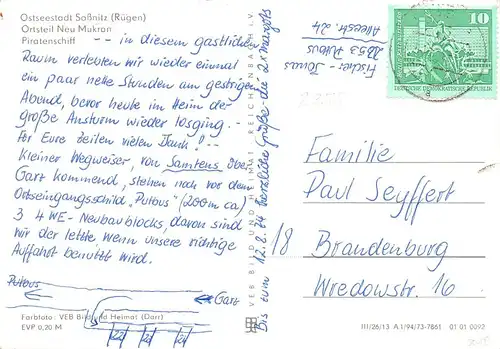 Ostseestadt Saßnitz (Rügen)
Ortsteil Neu Mukran
Piratenschiff
-- in diesem gastlichen
Raum verlebten wir wieder einmal
ein paar nette Stunden am gestrigen
Abend, bevor heute im Heim der
große Ansturm wieder losging.
Für Eure Zeilen vielen Dank! --
Kleiner Wegweiser, von Samtens über
Garz kommend, stehen noch vor dem
Ortseingangsschild "Putbus" (200m ca)
3 4 WE-Neubaublocks, davon sind
wir der letzte, wenn unsere richtige
Auffahrt benutzt wird.
Putbus
Garz
Farbfoto: VEB Bild und Heimat (Darr)
EVP 0,20 M
VEB BILD UND HEIMAT REICHENBACH i. V.
Bis zum 12.8.74 herzliche Grüße - die 2 x Margots
Fischer-Jonas
2353 Putbus
Alleestr. 24
10
DEUTSCHE DEMOKRATISCHE REPUBLIK
Familie
Paul Seyffert
18 Brandenburg
Wredowstr. 16
III/26/13 A 1/94/73-7661 01 01 0092